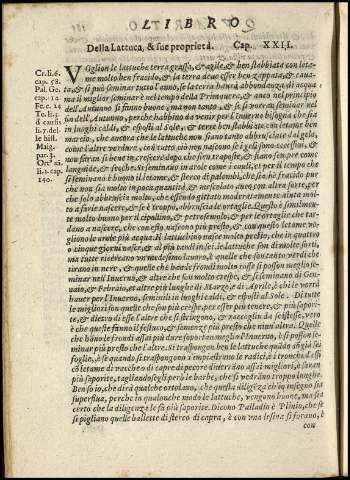 LIBRO
Della Lattuca, & sue proprietà. Cap. XXII.
Cr. li. 6.
cap. 58.
Pal. Ge.
cap. 14
Fe. c. 14
To. li. 3
d causis
li. 7. del-
le hist.
Maig.
par. 3.
li. 1. cap.
140.
VOglion le lattuche terra grassa, & agile, & ben stabbiata con leta-
me molto ben fracido, & la terra deue esser ben zappata, & caua-
ta, & si può seminar tutto l'anno, se la terra hauerà abbondanza di acqua
ma il miglior seminar è nel tempo della Primauera, & anco nel principio
dell'Autunno si fanno buone, ma non tanto, & se si voranno seminar nel
fin dell'Autunno, perche habbino da venir per l'Inuerno bisogna che sia
in luoghi caldi, & esposti al Sole, & terre ben stabbiate con letame ben
marcio, che ancora che le lattuche non siano tanto abbrusciate, nel caldo,
come l'altre verdure, con tutto ciò non nascono se'l gielo sarà eccessiuo, &
non seran si bene in crescere dopò che sien traposte, & stano sempre come
languide, & fosche. Si seminano in arole come i cauli, et per il tempo che
si seminano è buono il letame, & sterco di palombi, che sia hò fracido pur
che non sia molto in poca quantità, & mescolato anco con altra sorte, per
che solo abbruscia molto, che essendo gittato moderatamente aiuta mol-
to a farle nascere, & se è troppo, abbruscia le ortaglie. Questo è similmen-
te molto buono per il cipollino, & petrosemolo, & per le ortaglie che tar-
dano a nascere, che con esso nascono più presto, & con questo letame vo-
gliono le ortaglie più acqua. Le lattuche nasce molto presto, che in quattro
o cinque giorni nasce, & al più tardi in sei. le lattuche son di molte sorti,
ma tutte ricercano vn medesimo lauoro, è quelle che son tanto verdi che
tirano in nere, & quelle che hano le frondi molto rosse si posson meglio se-
minar nell'Inuerno, & altre che son molto crespe, & si seminano di Gen-
naio, & Febraio, et altre più lunghe di Marzo, e di Aprile, è chi le vorrà
hauer per l'Inuerno, seminili in luoghi caldi, & esposti al Sole. Di tutte
le migliori son quelle che son più crespe, per esser più tenere, & più sapori-
te, & dietro di esse l'altre che si stringono, & raccolgon da se istesse, vero
è che queste fanno il festuco, & semenze più presto che niun'altra. Quelle
che hano le frondi assai più dure sopportan meglio l'Inuerno, & si posson se-
minar più presto che l'altre. Si traspongon le lattuche quādo hā già sei
foglie, & se quando si traspongono s'impiastrano le radici, & i troncha di es-
si cō letame di vaccheo di capre di pecore diuerrano assai migliori, & saran
più saporite, tagliandosegli però le barbe, che si vedrāno troppo lunghe.
Ben sò io, che dirà qualche ortolano, che questa diligēza ch'io insegno sia
superflua, perche in qualonque modo le lattuche, vengono buone, ma sia
certo che la diligenza le fa più saporite. Dicono Palladio è Plinio, che se
si pigliano quelle ballette di sterco di capra, & con vna lesina si forano, &
con